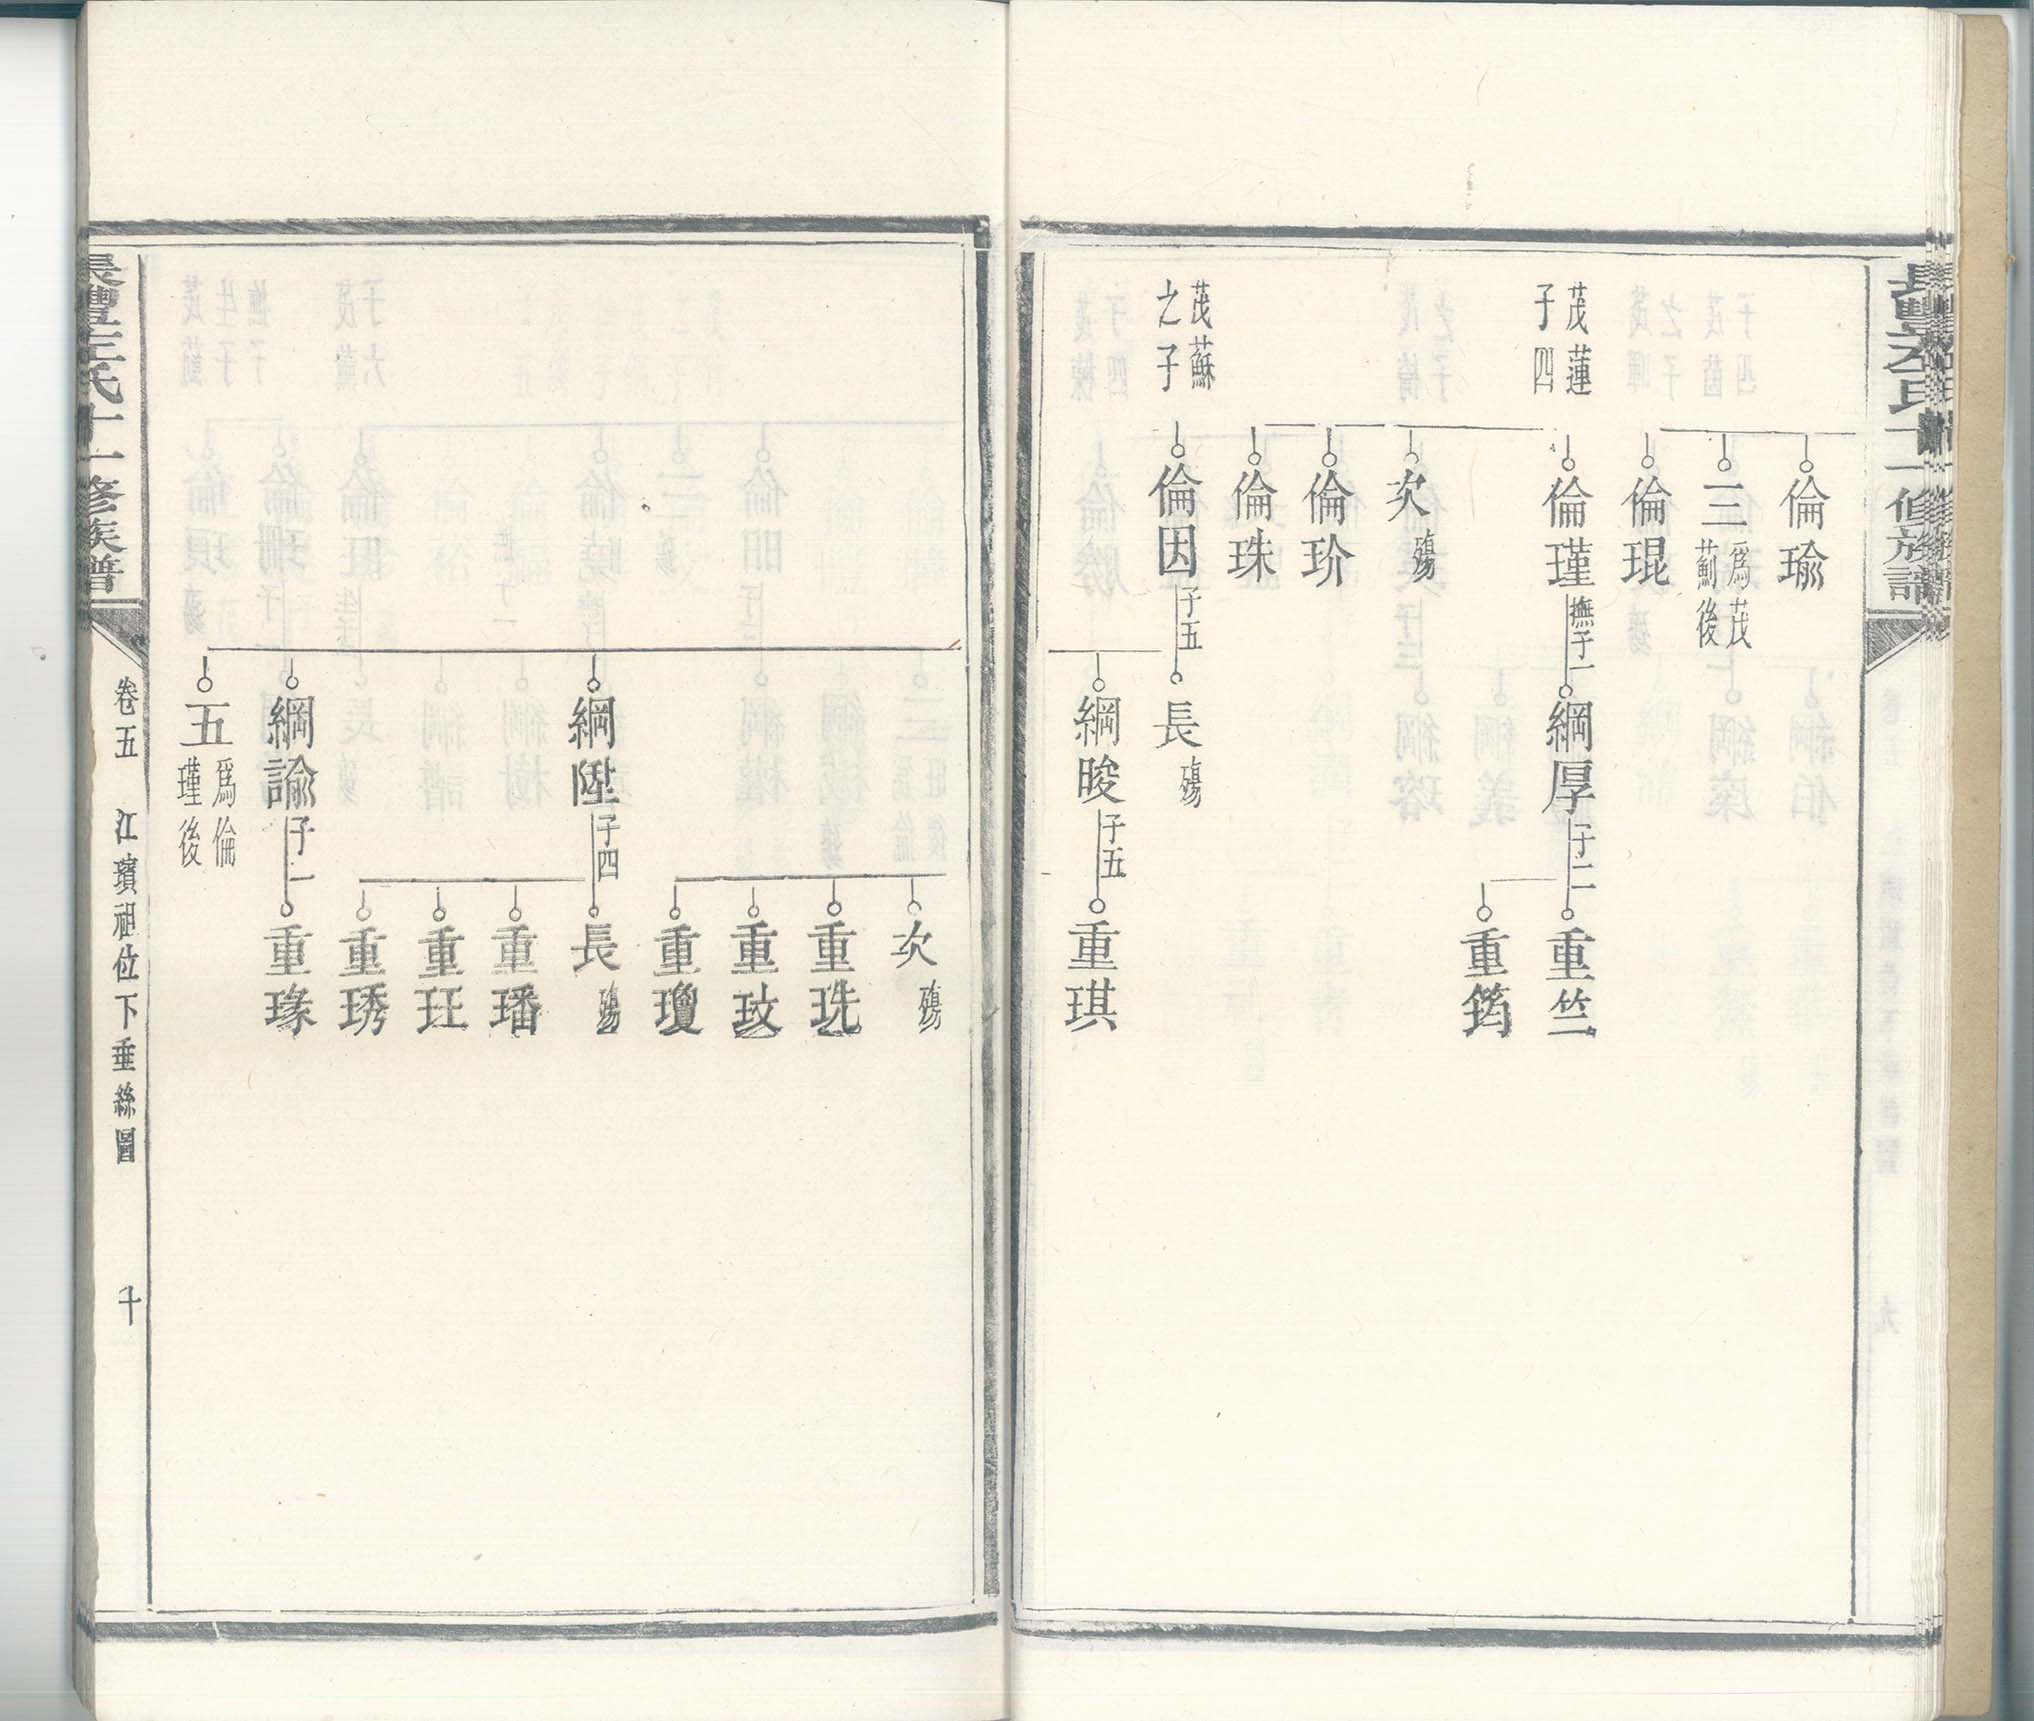 倫瑜
三
爲茂
薊後
倫琨
茂蓮
子四
倫瑾
撫子一
綱厚
子二
重竺
重筠
次
殤
倫玠
倫珠
茂蘇
之子
倫因
子五
長
殤
綱晙
子五
重琪
次
殤
重珗
重玫
重瓊
綱陞
子四
長
殤
重璠
重玨
重琇
綱諭
子一
重瑑
五
爲倫
瑾後
長豐左氏十一修族譜
卷五
江璸祖位下垂絲圖
十